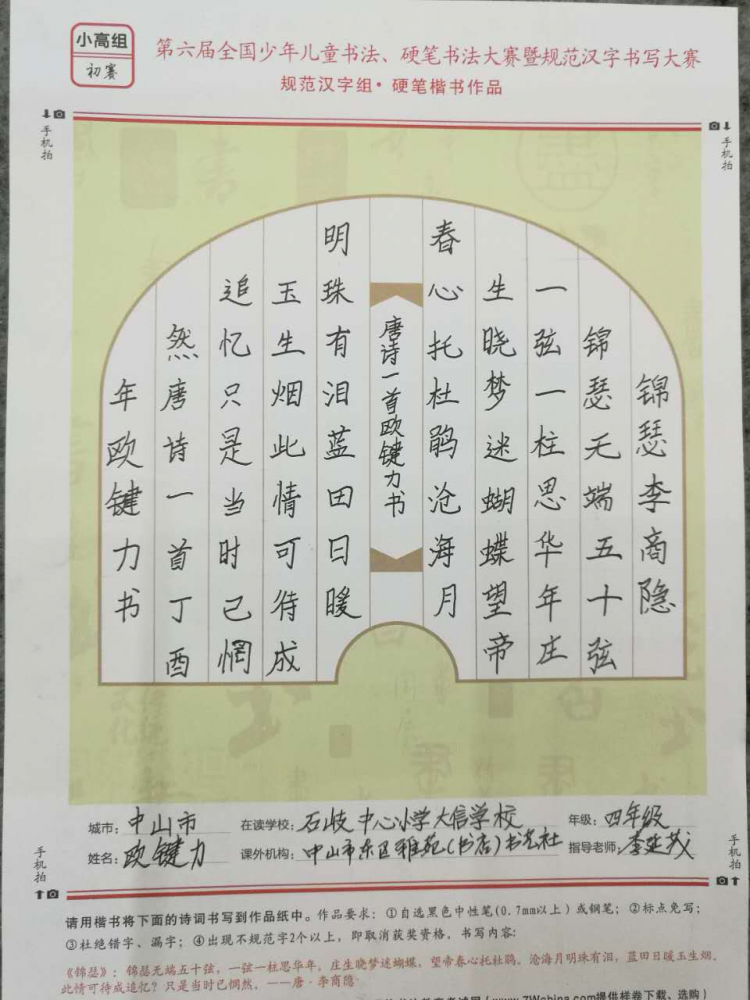 小高组
初赛
第六届全国少年儿童书法、硬笔书法大赛暨规范汉字书写大赛
规范汉字组·硬笔楷书作品
手机拍
手机拍
锦瑟李商隐
锦瑟无端五十弦
一弦一柱思华年庄
生晓梦迷蝴蝶望帝
春心托杜鹃沧海月
唐诗一首欧键力书
明珠有泪蓝田日暖
玉生烟此情可待成
追忆只是当时已惘
然唐诗一首丁酉
年欧键力书
城市：中山市 在读学校：石岐中心小学大信学校 年级：四年级
姓名：欧键力 课外机构：中山市东区雅苑(书店)书艺社 指导老师：李延茂
手机拍
手机拍
请用楷书将下面的诗词书写到作品纸中。作品要求：①自选黑色中性笔(0.7mm以上)或钢笔；②标点免写；
③杜绝错字、漏字；④出现不规范字2个以上，即取消获奖资格，书写内容：
《锦瑟》：锦瑟无端五十弦，一弦一柱思华年，庄生晓梦迷蝴蝶，望帝春心托杜鹃，沧海月明珠有泪，蓝田日暖玉生烟，
此情可待成追忆？只是当时已惘然。——唐·李商隐